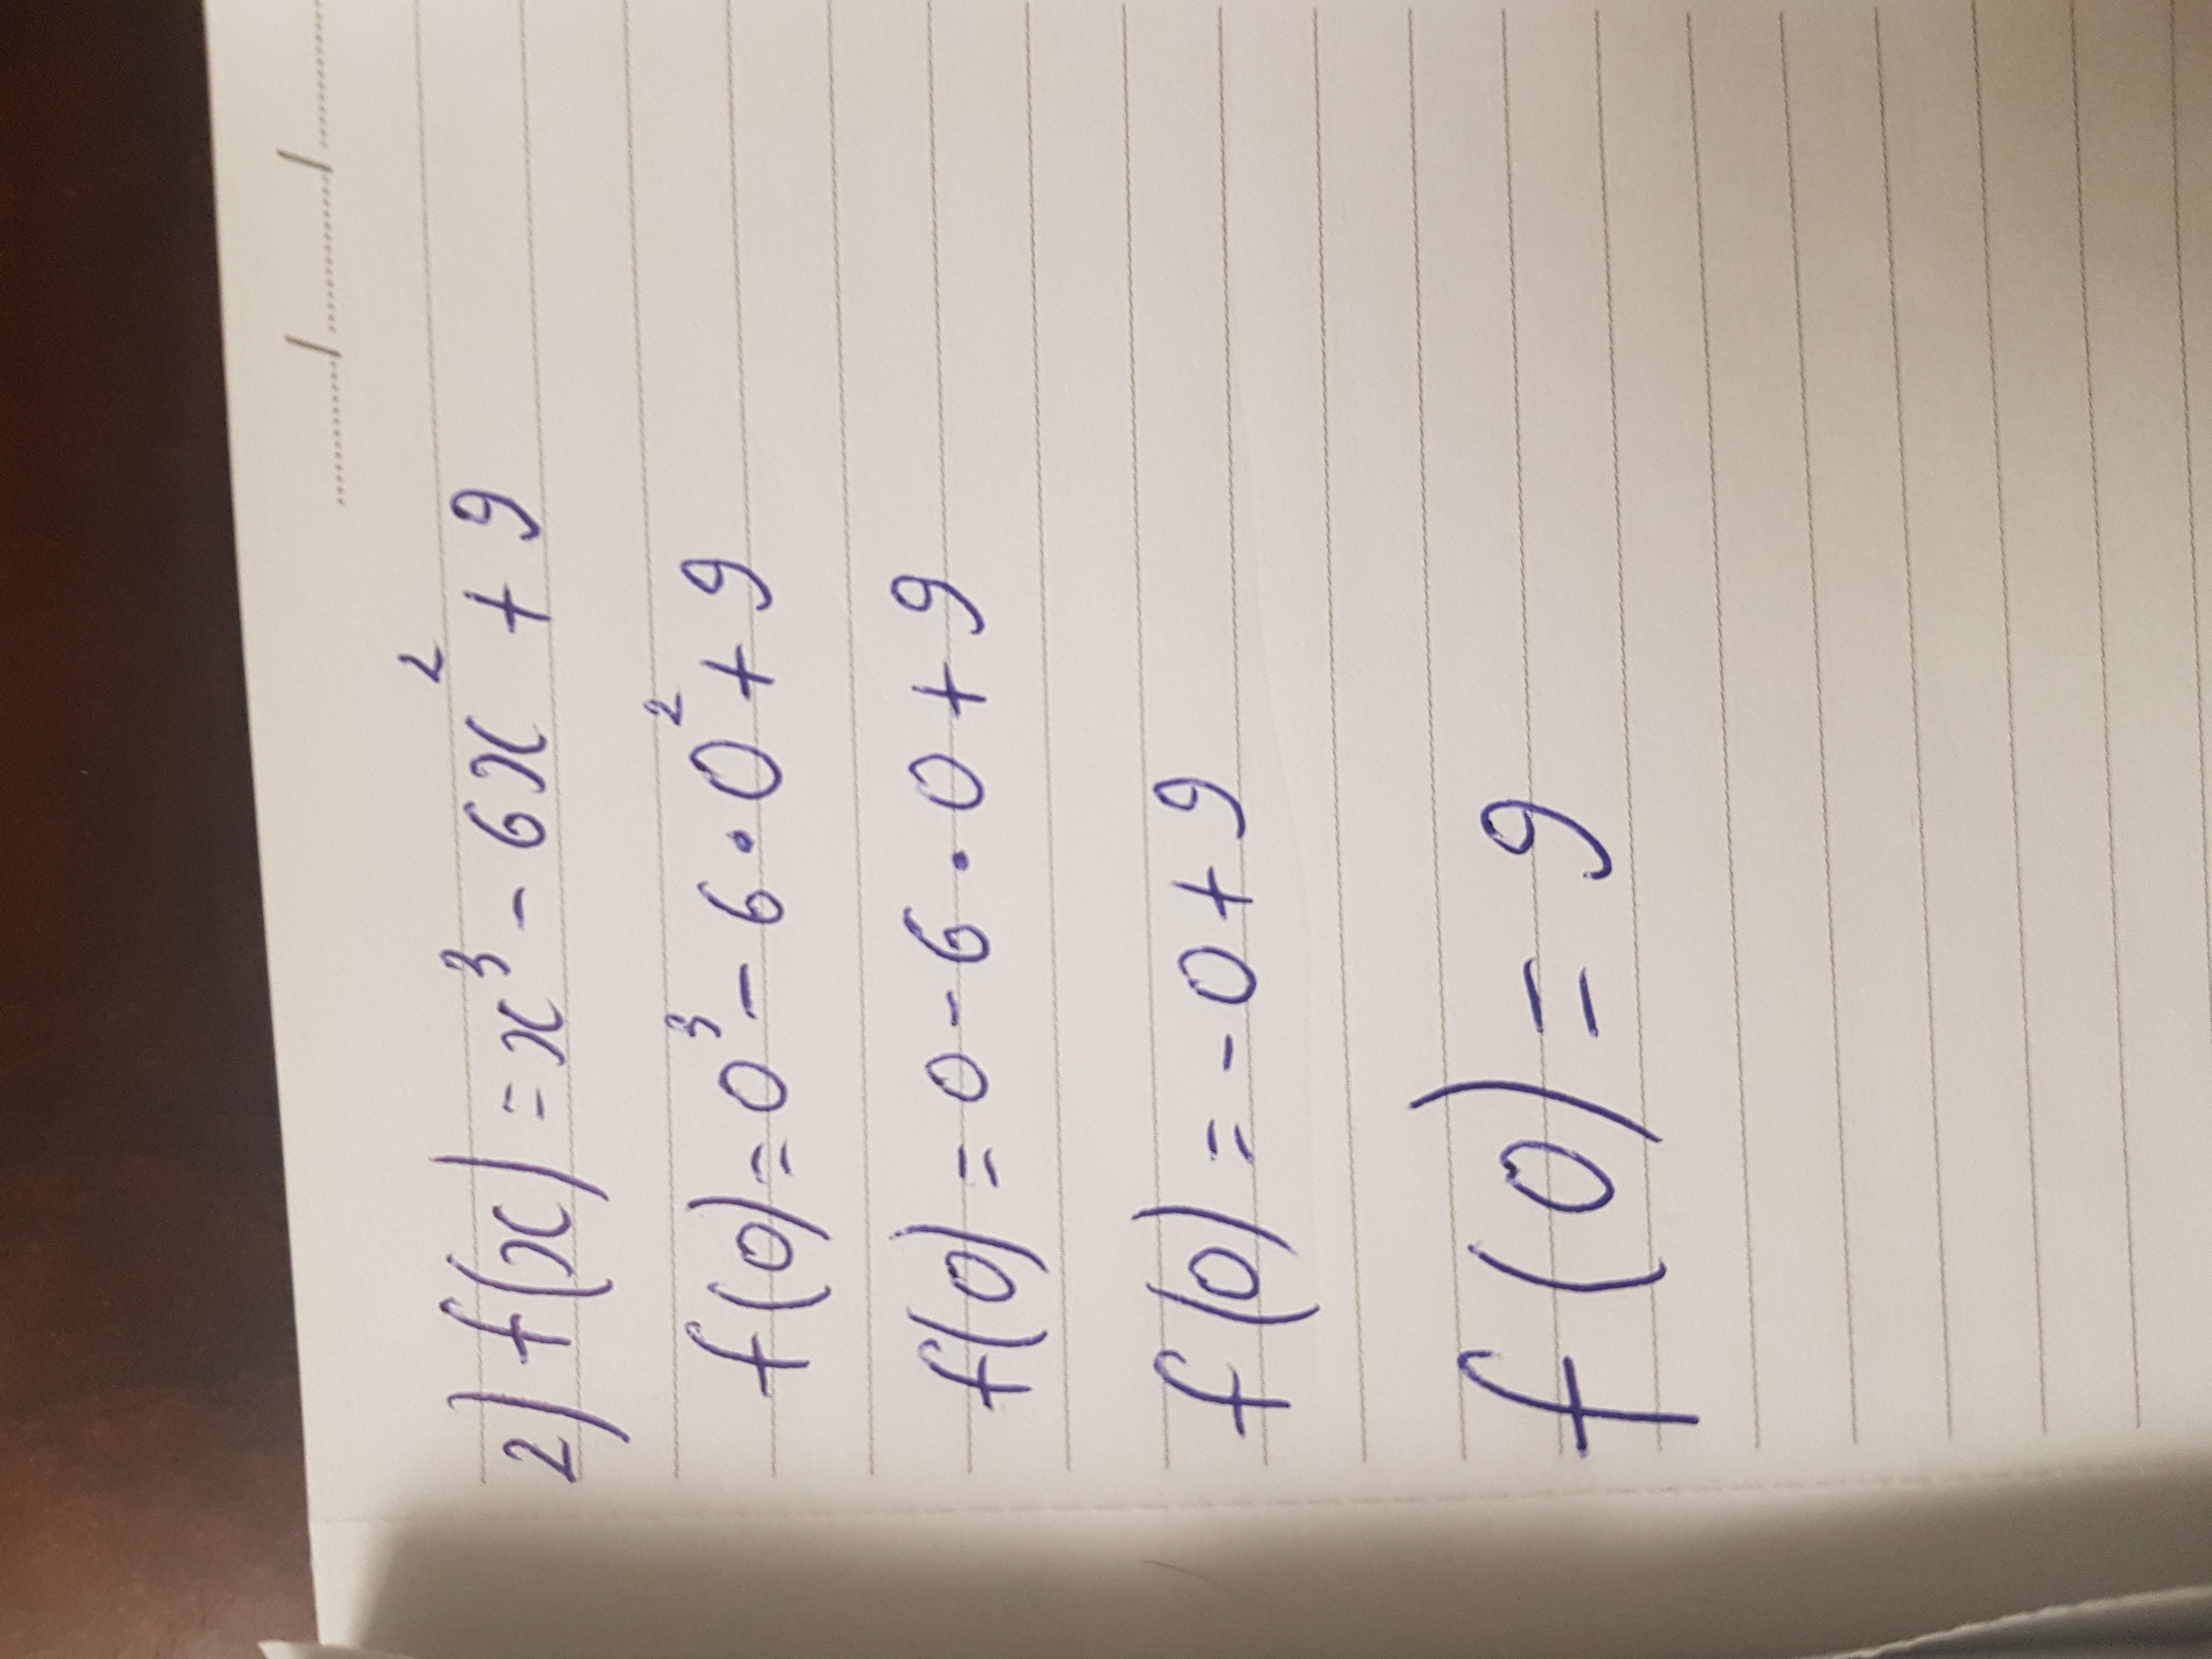 2) f(x) = x³ - 6x² + 9
f(0) = 0³ - 6 · 0² + 9
f(0) = 0 - 6 · 0 + 9
f(0) = - 0 + 9
f(0) = 9